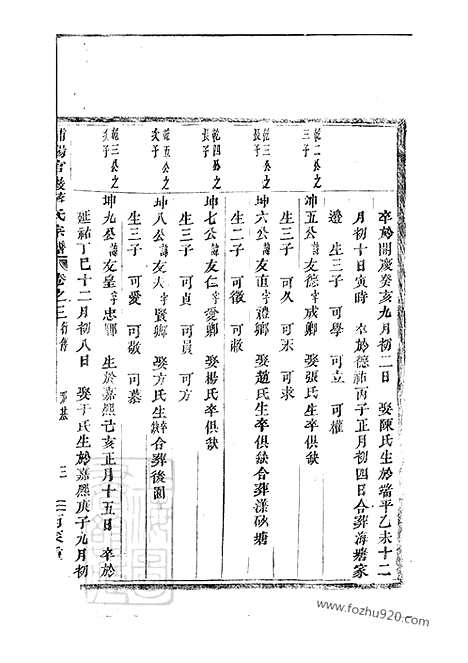 卒於開慶癸亥九月初二日 娶陳氏生於端平乙未十二
月初十日寅時 卒於德祐丙子正月初四日合葬海塘家
邉 生三子 可學 可立 可權
乾二公之
坤五公諱友德字成卿 娶張氏生卒俱缺
生三子 可久 可求
乾三公之長子
坤六公諱友直字禮卿 娶趙氏生卒俱缺合葬漾砂塘
生二子 可徵 可
乾四公之長子
坤七公諱友仁字愛卿 娶楊氏卒俱缺
生三子 可貞 可員 可方
乾五公之次子
坤八公諱友夫字賢卿 娶方氏生卒缺合葬後園
生三子 可愛 可敬 可慕
乾三公之次子
坤九公諱友皇字忠卿 生於嘉熙己亥正月十五日 卒於
延祐丁巳十二月初八日 娶于氏生於嘉熙庚子九月初
浦陽官巖 氏宗譜 卷之三 行傳 三
www.fozhu920.com